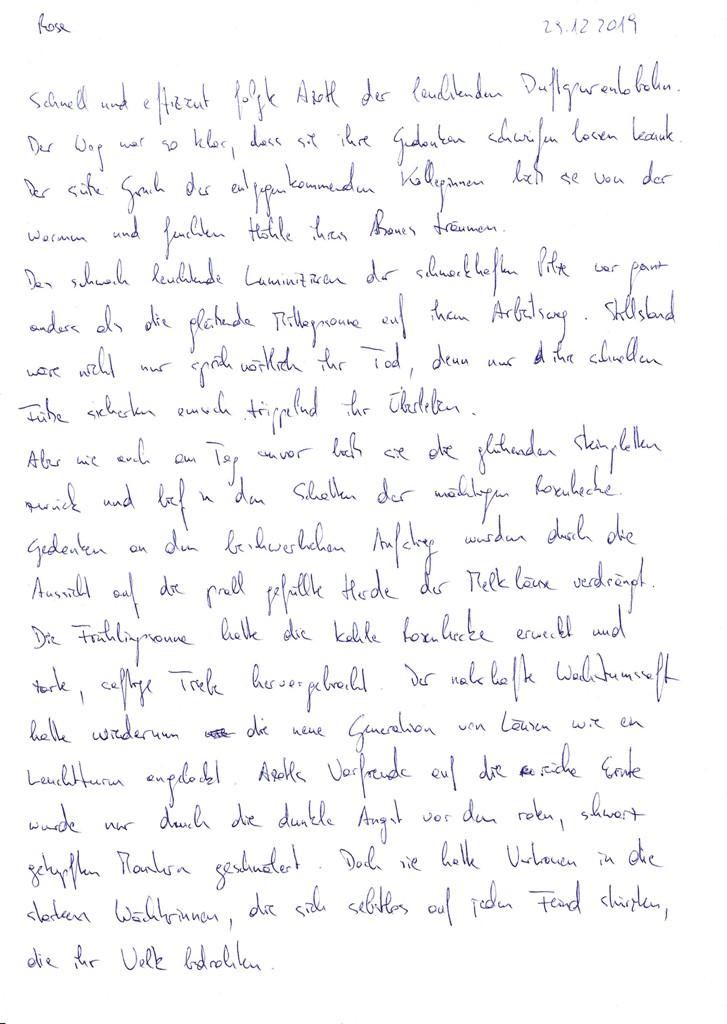 Rose 29.12.2019
Schnell und effizient folgte Azotl der leuchtenden Duftspurenlobahn.
Der Weg war so klar, dass sie ihre Gedanken schweifen lassen konnte.
Der süße Geruch der entgegenkommenden Kolleginnen ließ sie von der
warmen und feuchten Höhle ihres Baues träumen.
Das schwach leuchtende Luminizieren der schmackhaften Pilze war ganz
anders als die glühende Mittagssonne auf ihrem Arbeitsweg. Stillstand
wäre nicht nur sprichwörtlich ihr Tod, denn nur ihre schnellen
Füße sicherten einach trippelnd ihr Überleben.
Aber wie auch am Tag zuvor ließ sie die glühenden Steinplatten
zurück und lief in den Schatten der mächtigen Rosenhecke.
Gedanken an den beschwerlichen Aufstieg wurden durch die
Aussicht auf die prall gefüllte Herde der Melkläuse verdrängt.
Die Frühlingssonne hatte die kahle Rosenhecke erweckt und
starke, saftige Triebe hervorgebracht. Der nahrhafte Wachstumssaft
hatte wiederum die neue Generation von Läusen wie ein
Leuchtturm angelockt. Azotls Vorfreude auf die reiche Ernte
wurde nur durch die dunkle Angst vor den roten, schwarz
getupften Mardern geschmälert. Doch sie hatte Vertrauen in die
starken Wächterinnen, die sich selbstlos auf jeden Feind stürzten,
die ihr Volk bedrohten.